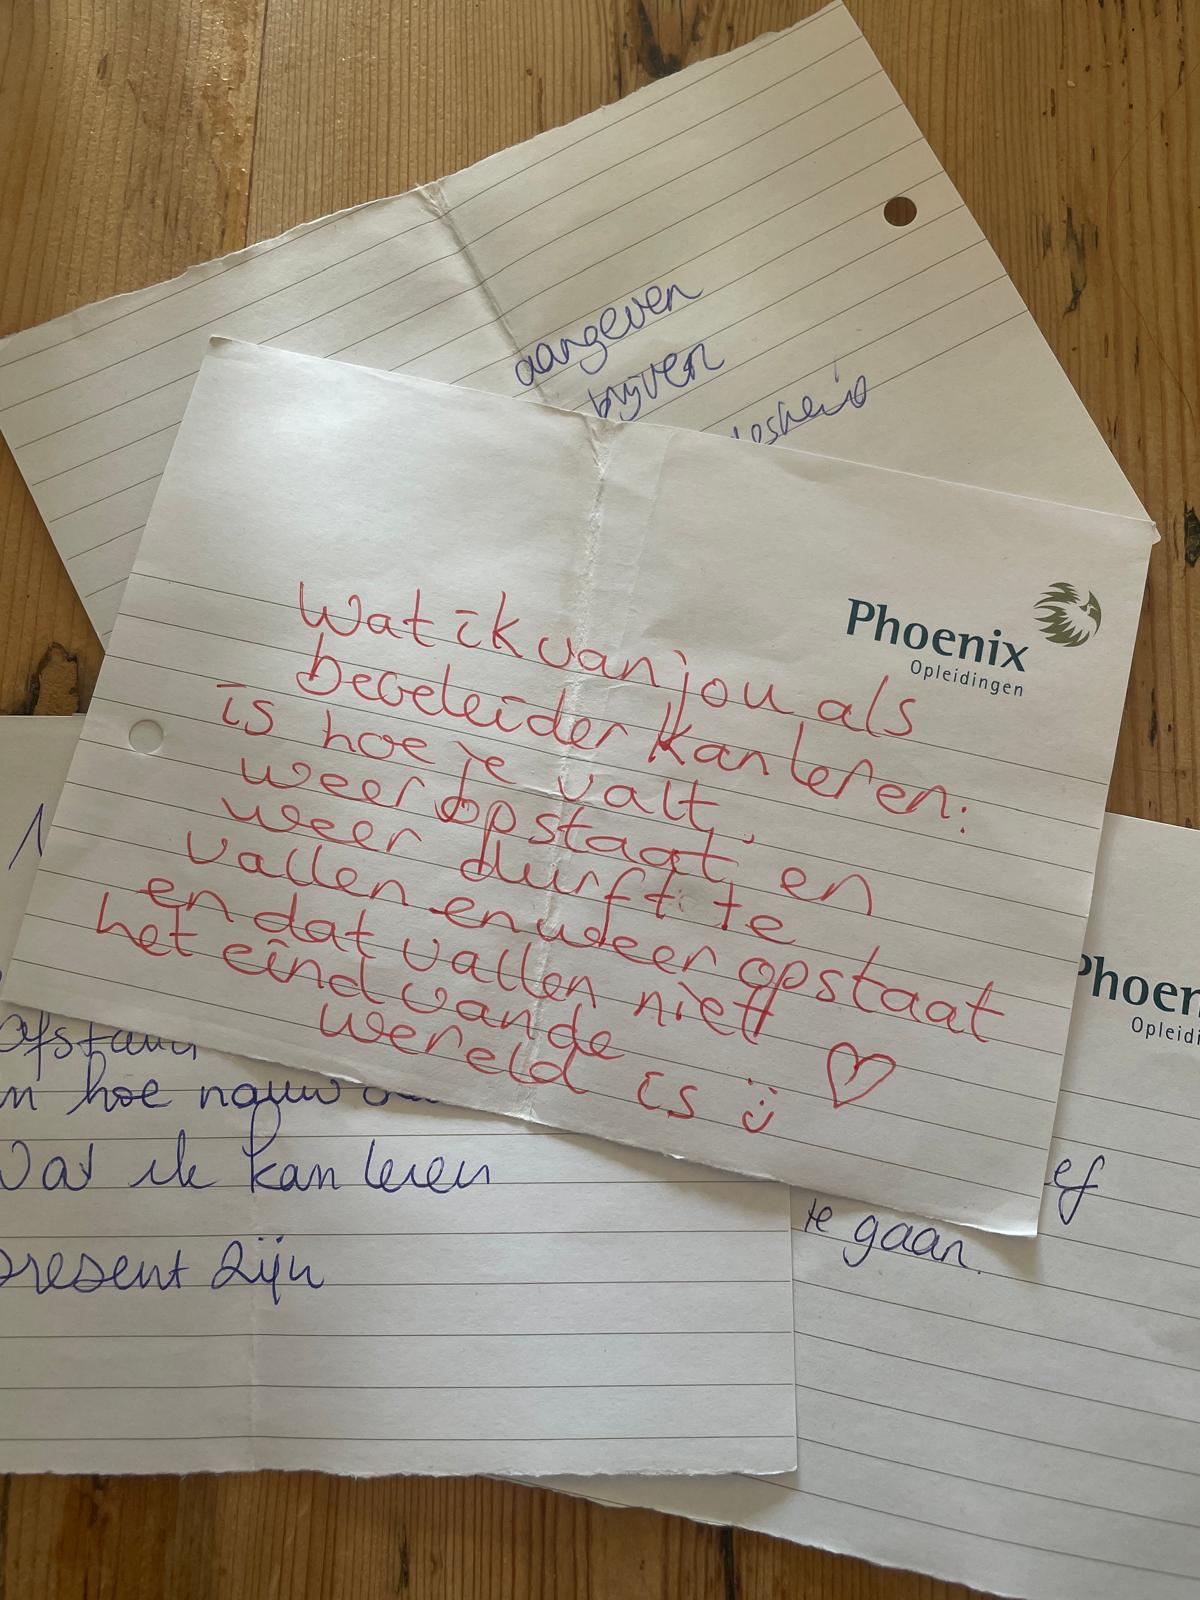 aangeven
blijven
Phoenix
Opleidingen
Wat ik van jou als
begeleider kan leren:
is hoe je valt,
weer opstaat en
weer durft te
vallen en weer opstaat
en dat vallen niet
het eind van de
wereld is :) ♡
afstand
hoe nauw
Wat ik kan leren
present zijn
Phoen
Opleidi
ef
te gaan.